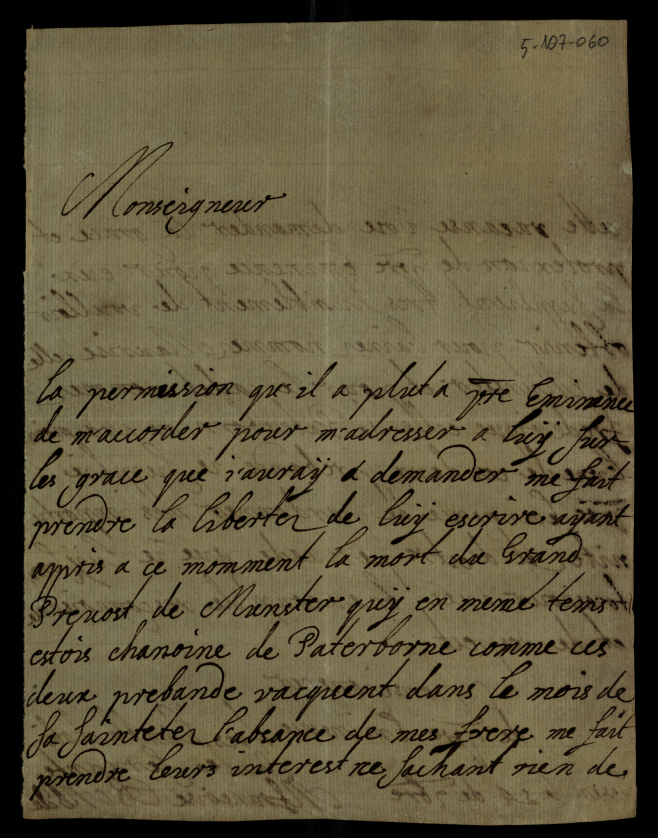 5-107-060
Monseigneur
la permission qu'il a plut a vre Eminence
de m'accorder pour m'adresser a luÿ sur
les grace que j'auraÿ a demander me fait
prendre la libertez de luÿ escrire aÿant
appris a ce momment la mort du Grand
Prevost de Munster quÿ en meme tems
estois chanoine de Paterborne comme ces
deux prebande vacquent dans le mois de
sa saintetez l'absance de mes frere me fait
prendre leurs interest ne sachant rien de